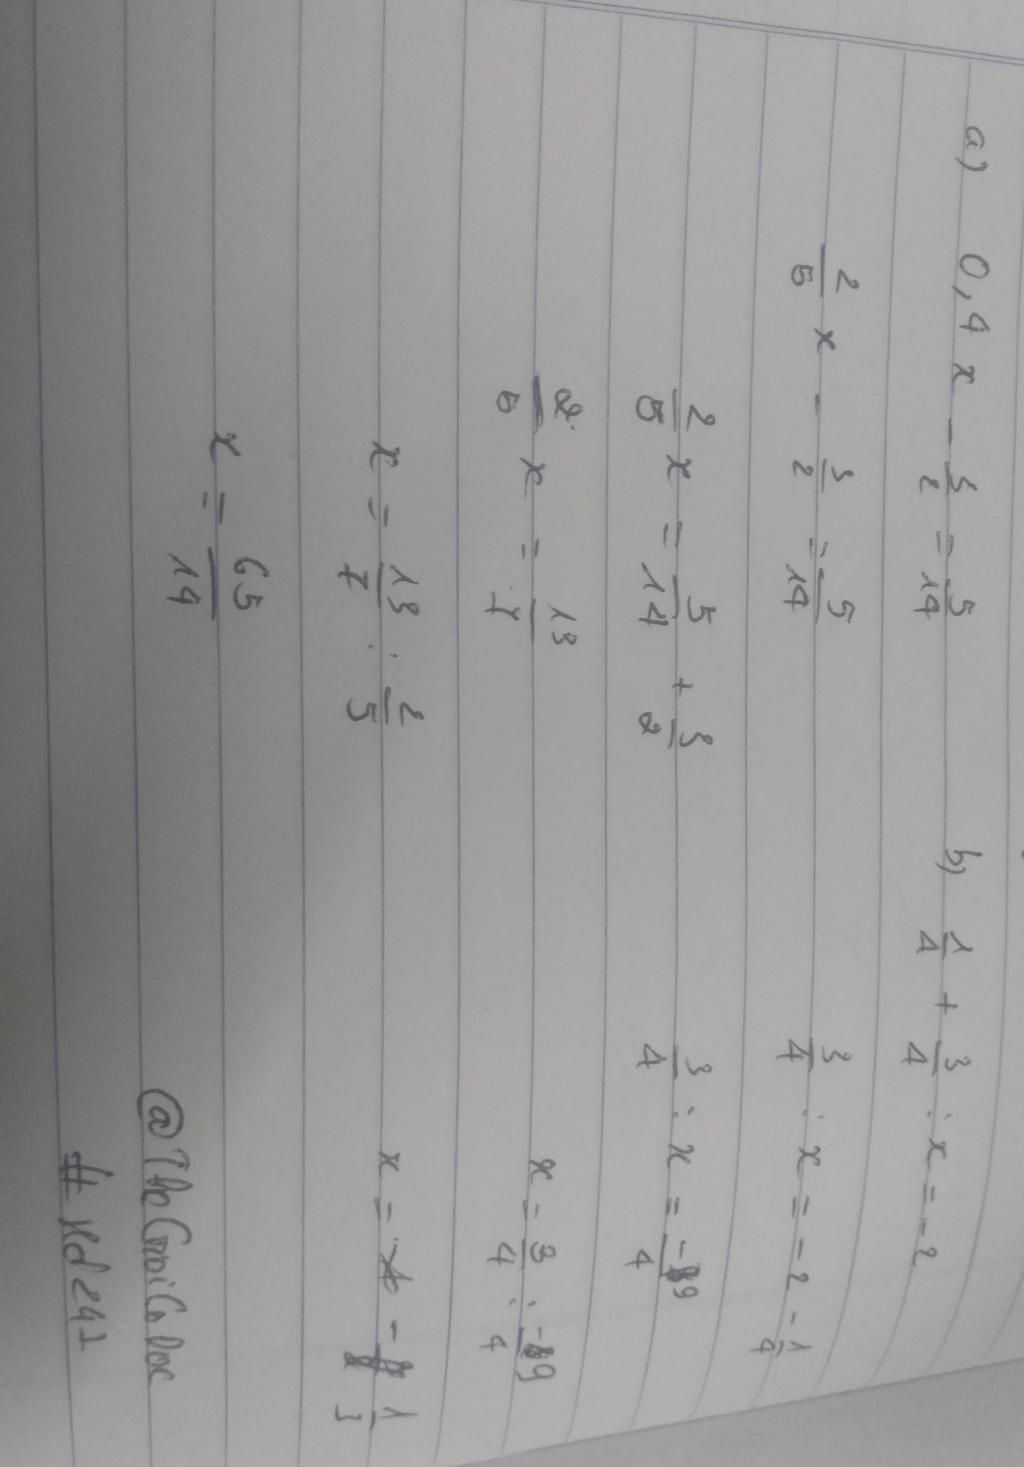 a) 0,4 x - 3/2 = 5/14
2/5 x - 3/2 = 5/14
2/5 x = 5/14 + 3/2
2/5 x = 13/7
x = 13/7 : 2/5
x = 65/14
b) 1/4 + 3/4 : x = -2
3/4 : x = -2 - 1/4
3/4 : x = -9/4
x = 3/4 : -9/4
x = - 1/3